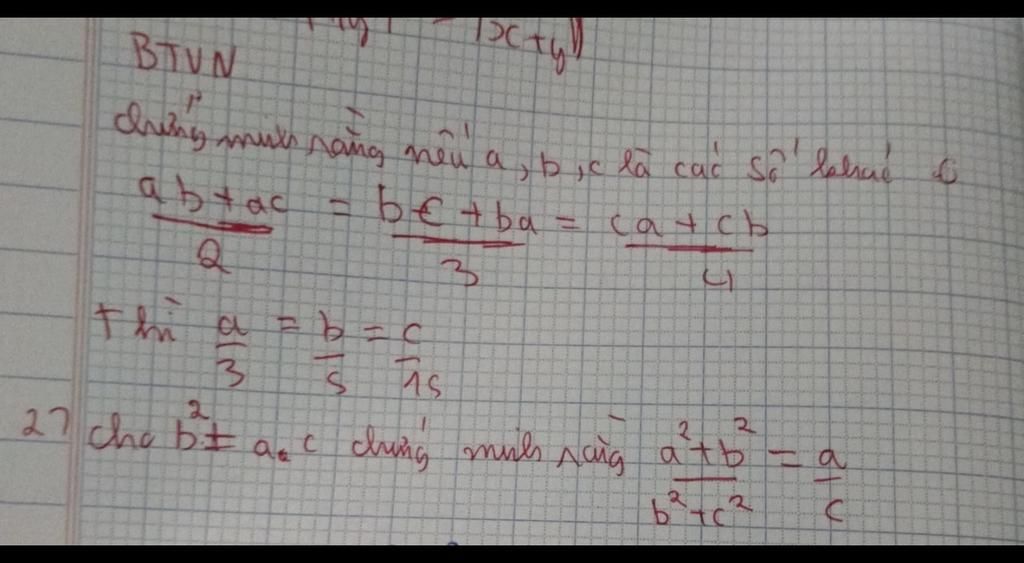 |x+y|
BTVN
chứng minh rằng nếu a, b, c là các số khác 0
ab+ac/2 = bc+ba/3 = ca+cb/4
thì a/3 = b/5 = c/15
27 cho b² = a.c chứng minh rằng a²+b²/b²+c² = a/c